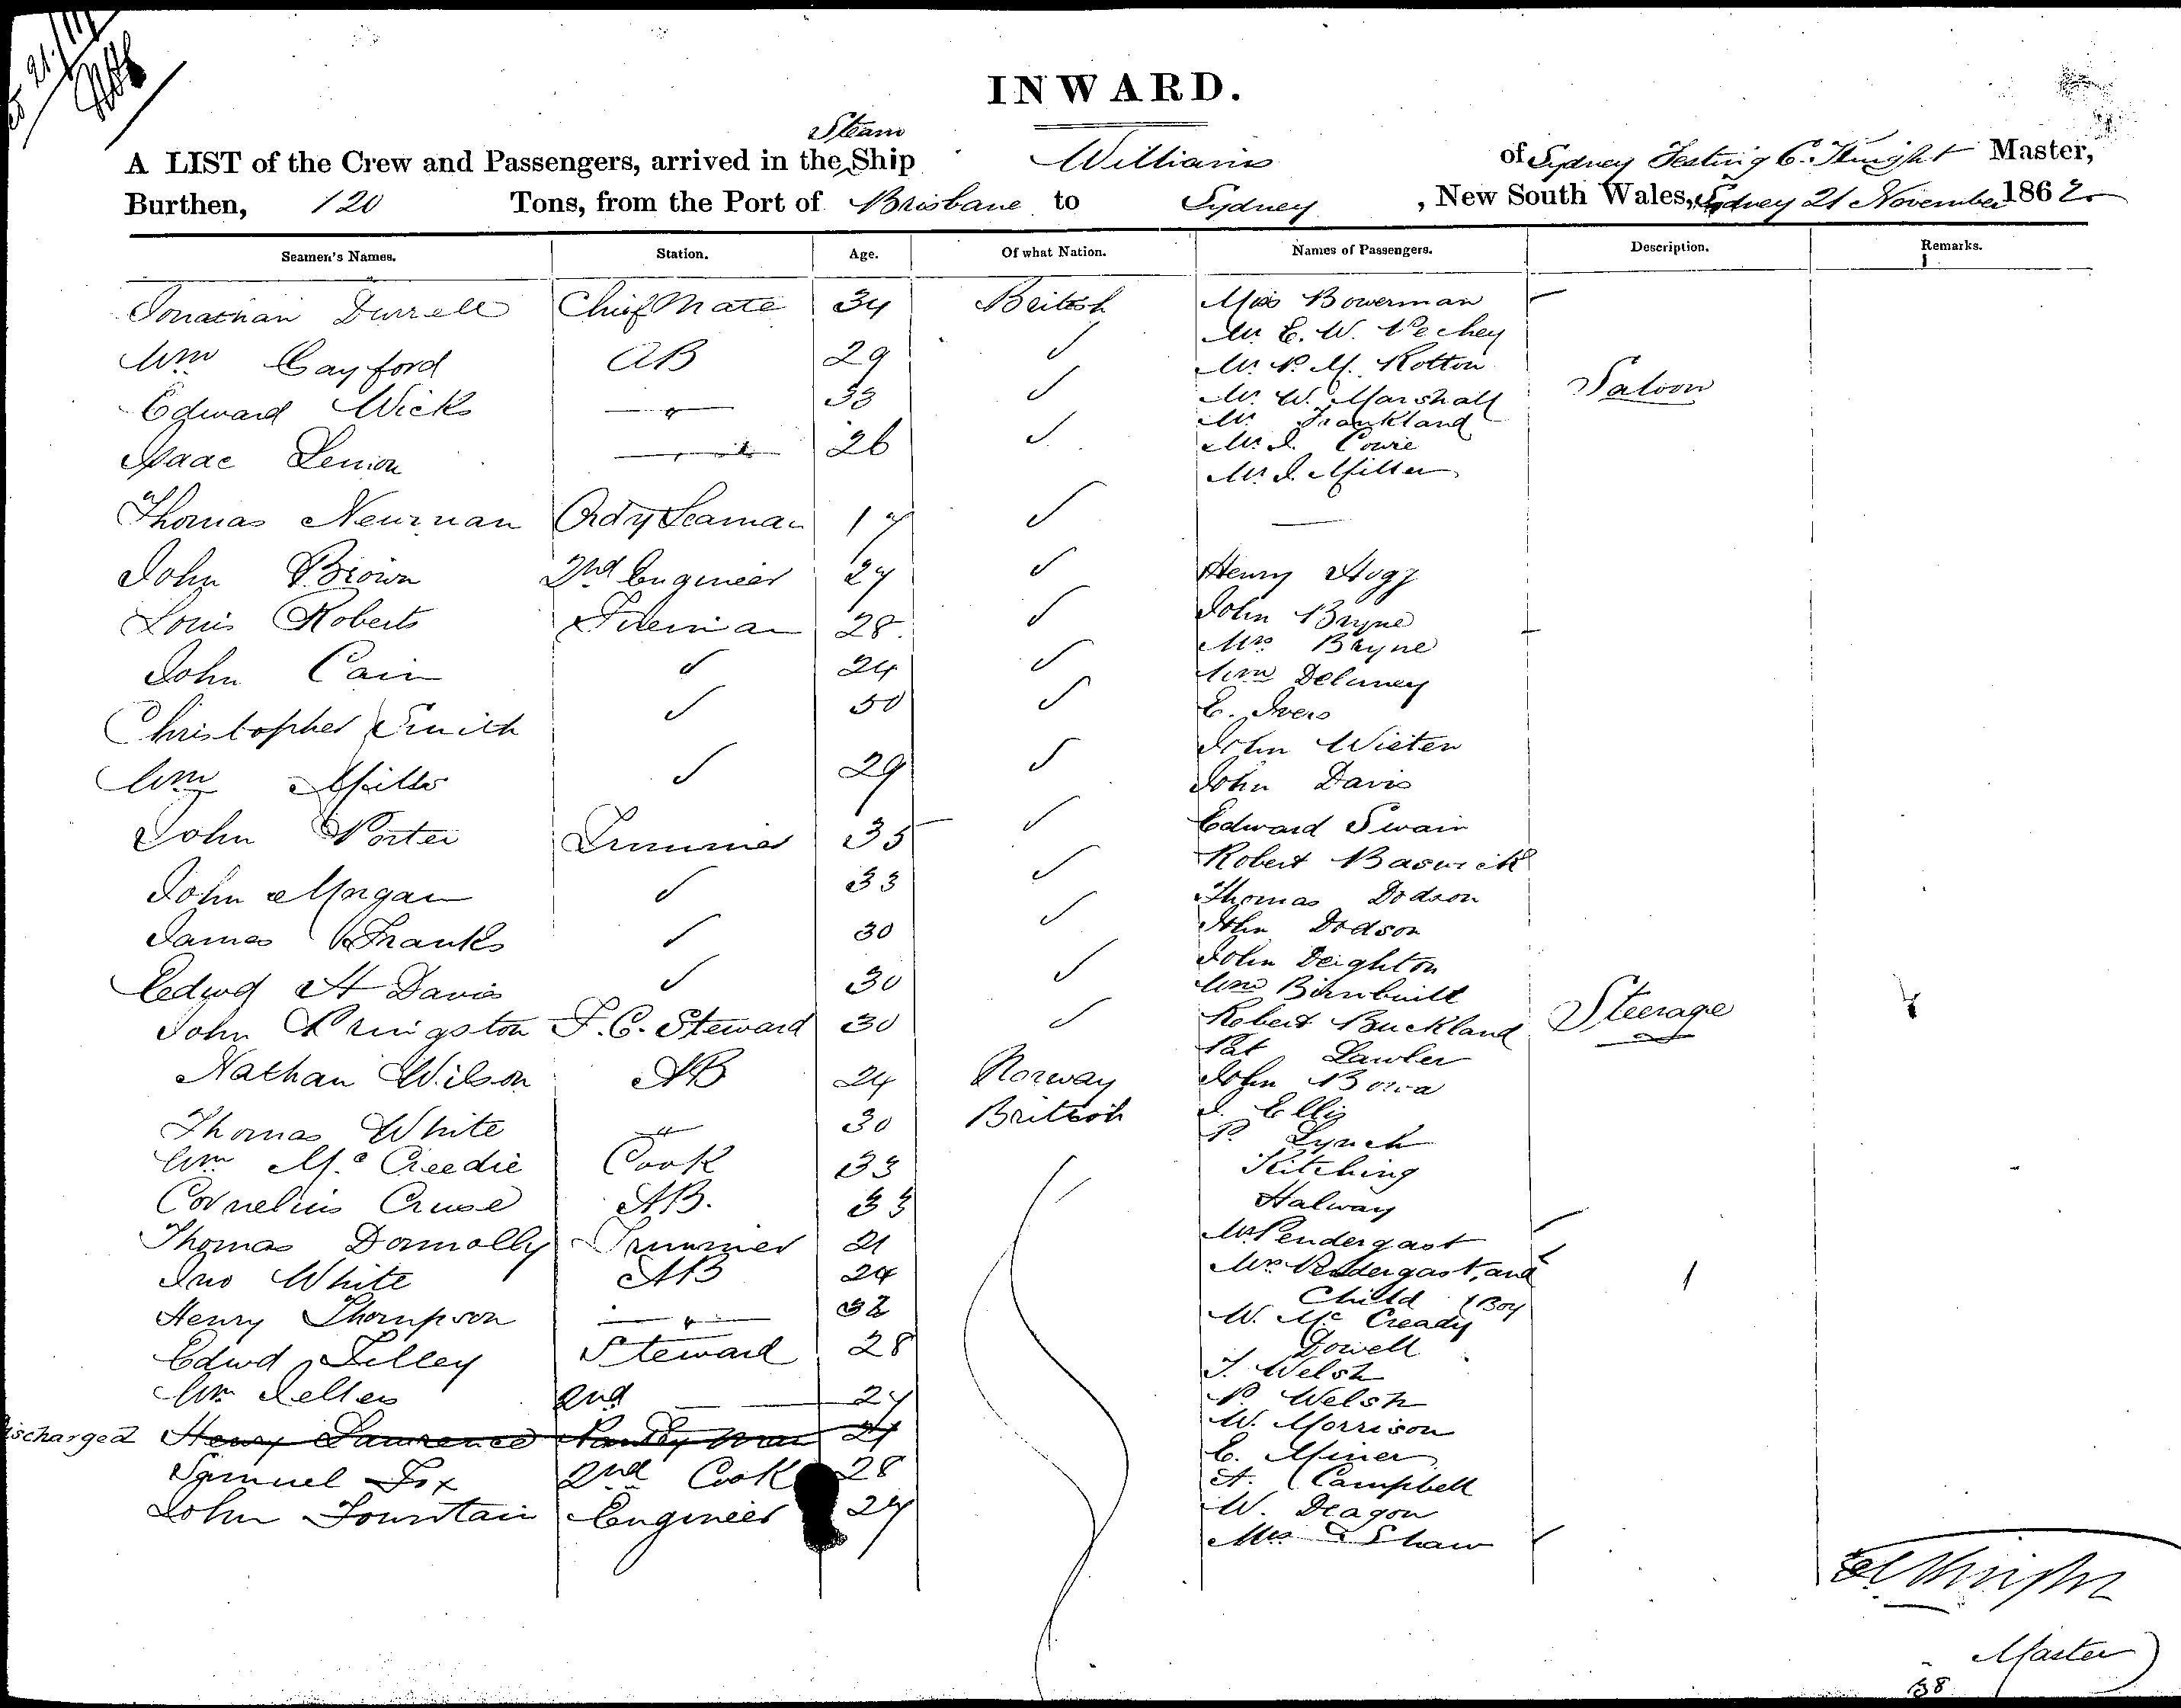 INWARD.
Steam
A LIST of the Crew and Passengers, arrived in the Ship Williams of Sydney Festing C. Knight Master,
Burthen, 120 Tons, from the Port of Brisbane to Sydney , New South Wales, Sydney 21 November 1862
Seamen's Names. Station. Age. Of what Nation. Names of Passengers. Description. Remarks.
Jonathan Durrell Chief Mate 34 British
Wm Cayford AB 29
Edward Wicks 33
Isaac 26
Thomas Newman Ordy Seaman 17
John Brown 2nd Engineer 27
Louis Roberts Fireman 28
John Cain 24
Christopher Smith 50
Wm Mills 29
John Porter Trimmer 35
John Morgan 33
James Franks 30
Edwd H Davis 30
John Kringston F.C. Steward 30
Nathan Wilson AB 24 Norway
Thomas White 30 British
Wm McCreedie Cook 33
Cornelius Cruse AB. 33
Thomas Donnolly Trimmer 21
Jno White AB 24
Henry Thompson 32
Edwd Lilley Steward 28
Wm Sellers 2nd 27
discharged Henry Lawrence Pantry man 21
Samuel Fox 2nd Cook 28
John Fountain Engineer 27
Miss Bowerman
Mr E. W. Pechey
Mr P. M. Rotton
Mr W. Marshall
Mr Frankland
Mr J. Cowie
Mr J. Miller
Saloon
Henry Hogg
John Bryne
Mrs Bryne
Wm Delaney
E. Ivers
John Wieten
John Davis
Edward Swain
Robert Baswick
Thomas Dodson
John Dodson
John Deighton
Wm Birnbuilt
Robert Buckland
Pat Lawler
John
J. Ellis
P. Lynch
Kitching
Halway
Mr Pendergast
Mrs Pendergast, and
Child 1 Boy
W. McCready
Dowell
T. Welsh
P. Welsh
W. Morrison
E. Miner
A. Campbell
W. Deagon
Mrs Shaw
Steerage
Master
138